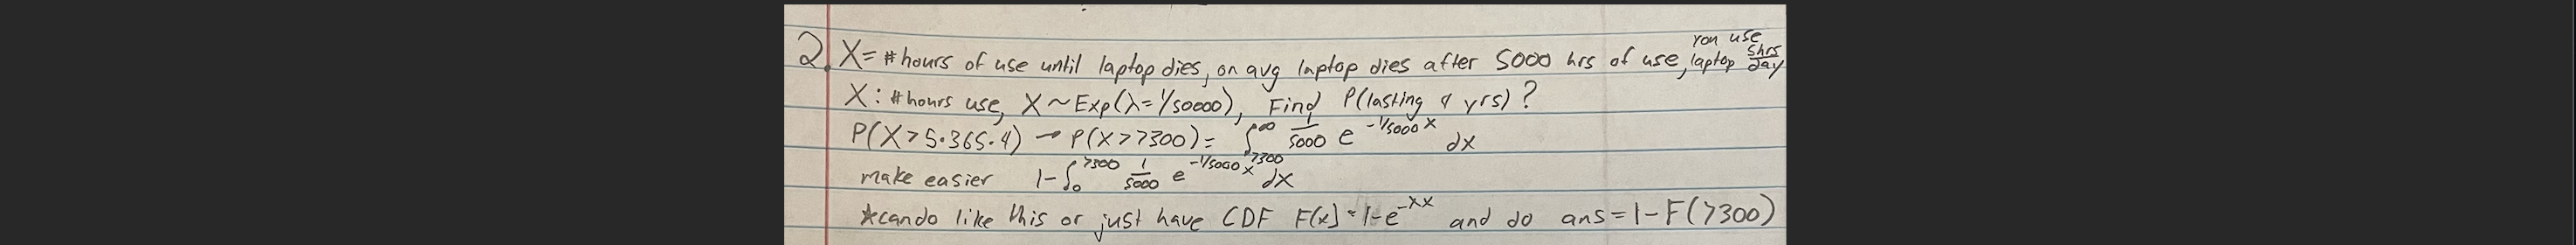 2. X = # hours of use until laptop dies, on avg laptop dies after 5000 hrs of use, you use laptop 5hrs/day
X: # hours use, X ~ Exp(λ = 1/50000), Find P(lasting 4 yrs)?
P(X > 5·365·4) → P(X > 7300) = ∫_7300^∞ 1/5000 e^(-1/5000 x) dx
make easier 1 - ∫_0^7300 1/5000 e^(-1/5000 x) dx
*can do like this or just have CDF F(x) = 1 - e^(-λx) and do ans = 1 - F(7300)